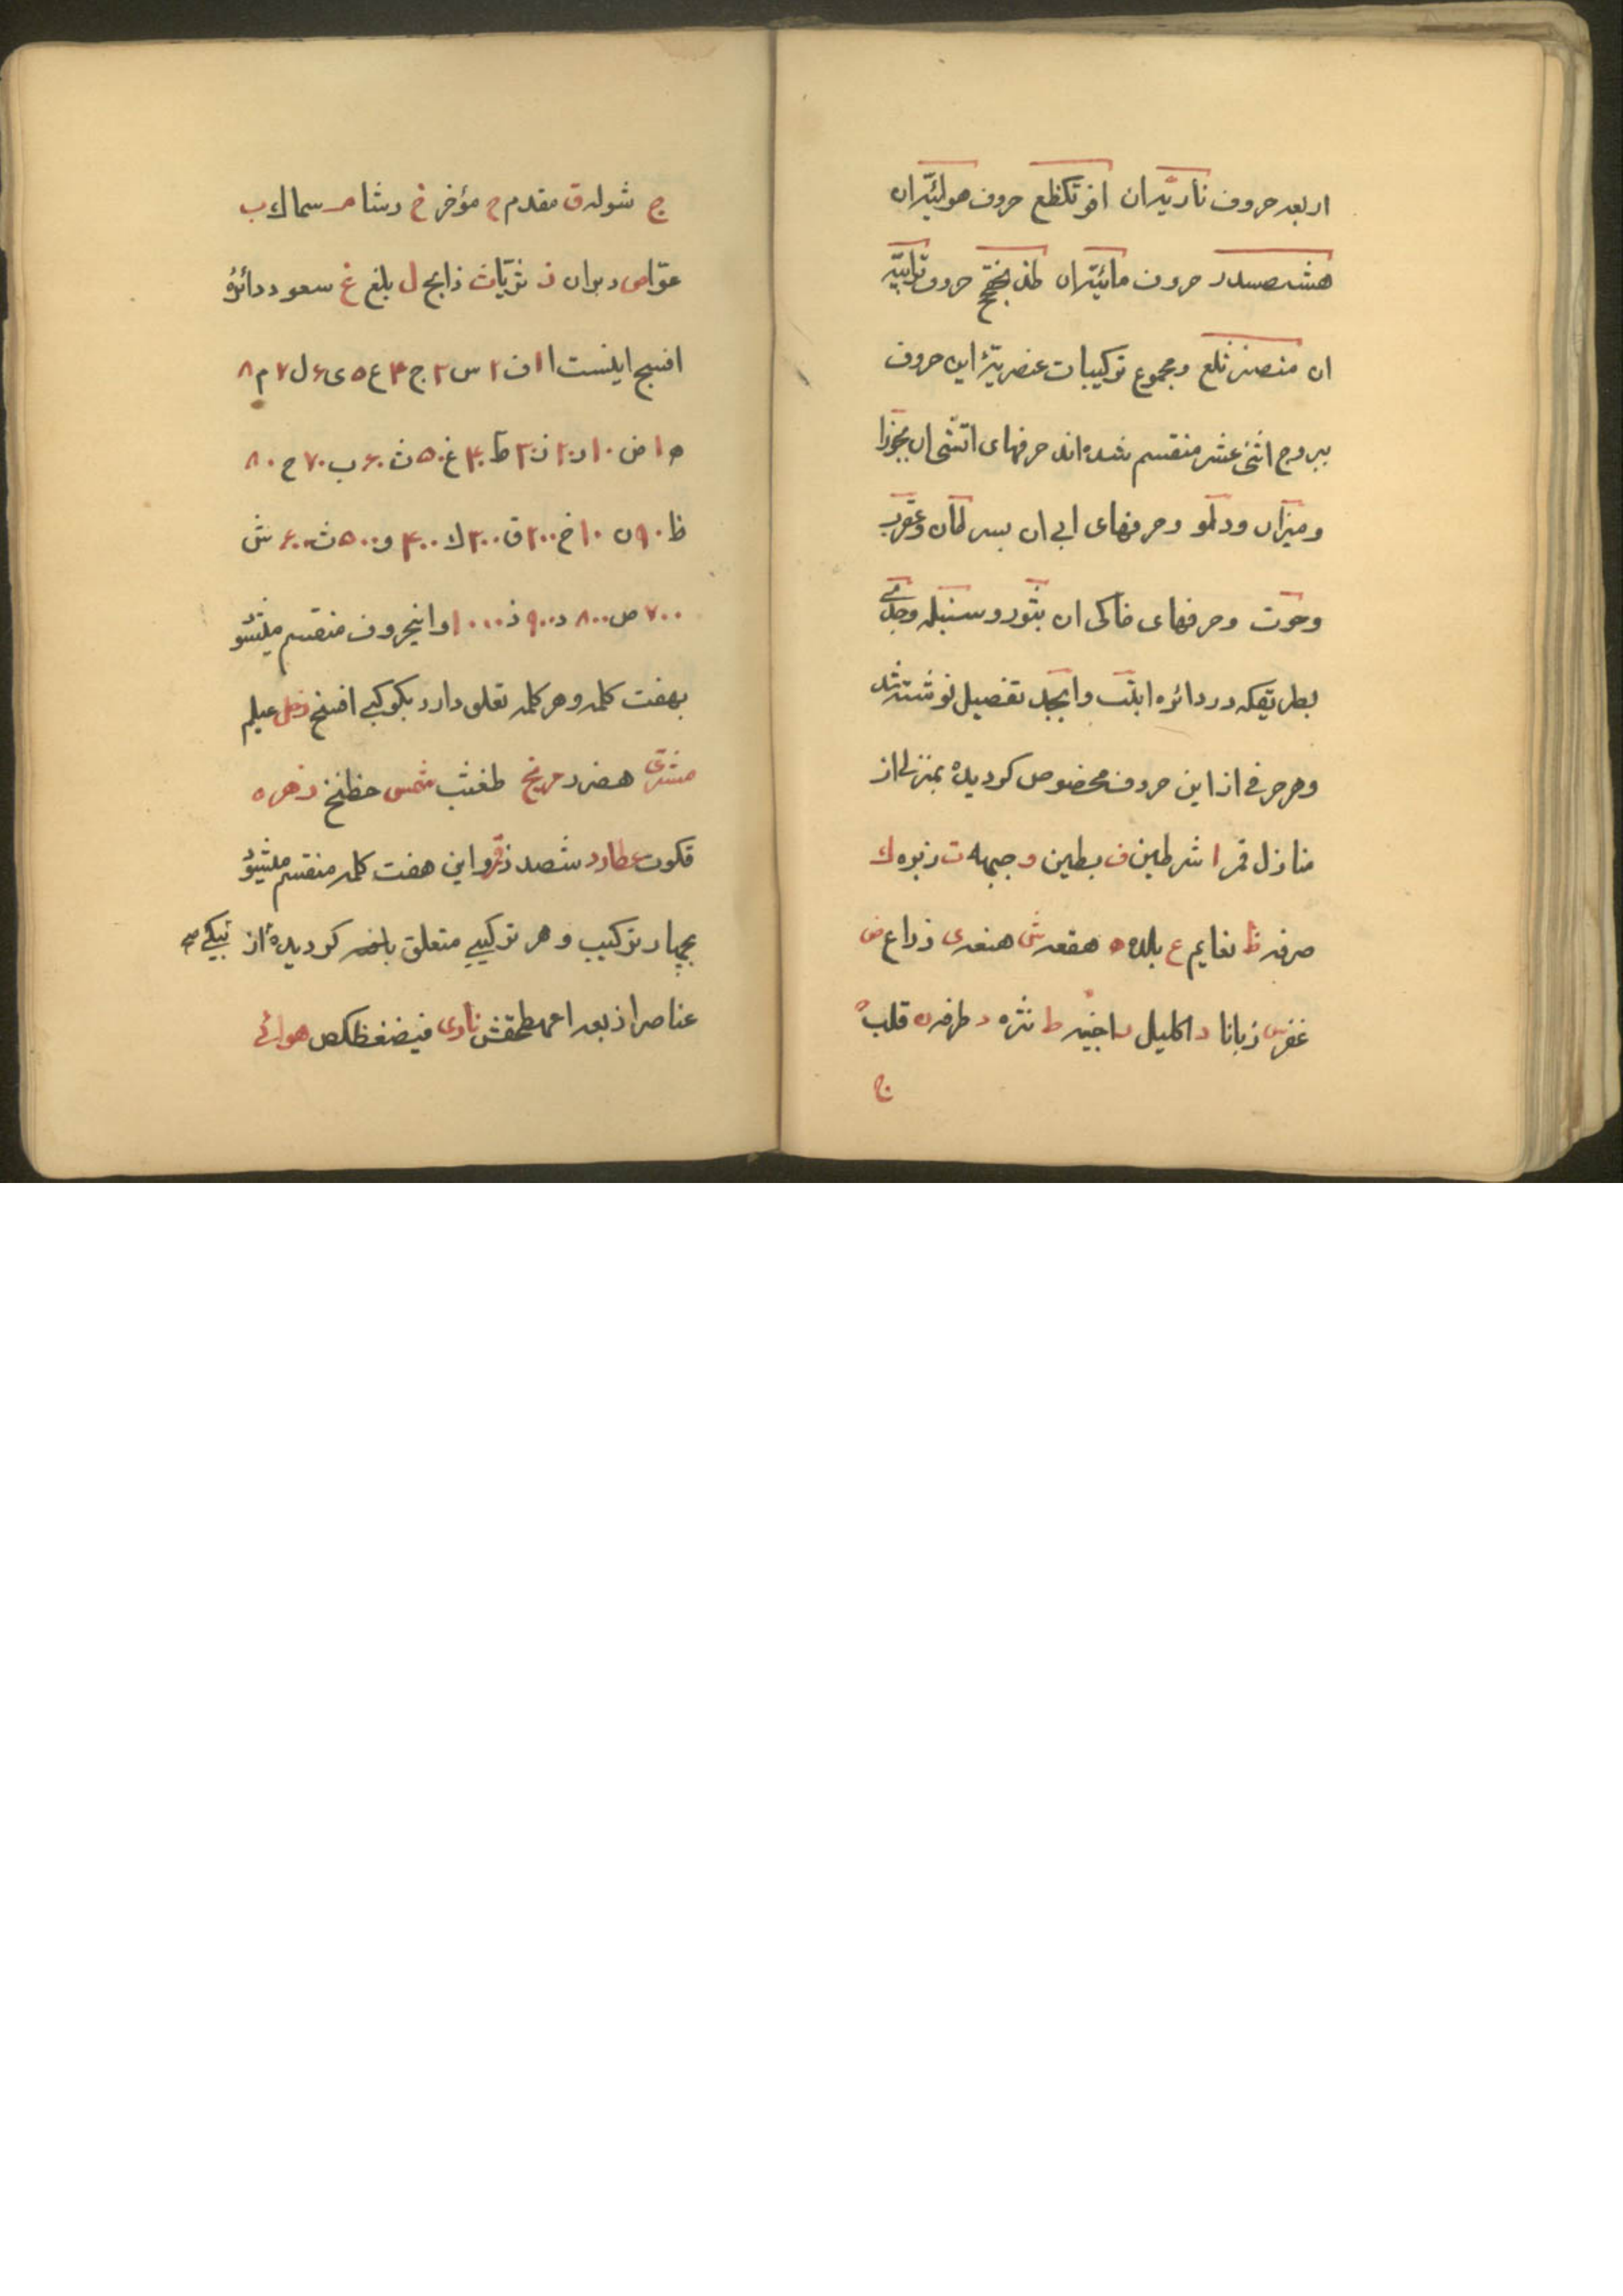 اربعه حروف ناریه ان افوتکظع حروف هوائیه ان
حروف مائیه ان حروف ترابیه
ان ومجموع ترکیبات عنصریهٔ این حروف
ببروج اثنی عشر منقسم شده اند حرفهای اتشی ان بجوزا
ومیزان ودلو وحرفهای ابی ان بسرطان وعقرب
وحوت وحرفهای خاکی ان بثور وسنبله وجدی
بطریقکه در دائره ابتث وابجد تفصیل نوشته شد
وهر حرفی از این حروف مخصوص کردیده بمنزلی از
منازل قمر ا شرطین ف بطین و جبهه ت زبره ك
صرفه ظ نعایم ع بلده ه هقعه ش هنعه ی ذراع ض
غفر س زبانا د اکلیل ر اخبیه ط نثره د طرفه ن قلب
ج
ج شوله ق مقدم ح مؤخر خ رشا م سماك ب
عوا ص دبران ذ ثریا ث ذابح ل بلع غ سعود دائرهٔ
افسج اینست ا ۱ ف ۲ س ۳ ج ۴ ع ۵ ی ۶ ل ۷ م ۸
ه ۹ ض ۱۰ ر ۲۰ ز ۳۰ ط ۴۰ غ ۵۰ ث ۶۰ ب ۷۰ ح ۸۰
ظ ۹۰ ن ۱۰۰ خ ۲۰۰ ق ۳۰۰ ك ۴۰۰ و ۵۰۰ ت ۶۰۰ ش
۷۰۰ ص ۸۰۰ د ۹۰۰ ذ ۱۰۰۰ واینحروف منقسم میشود
بهفت کلمه وهر کلمه تعلق دارد بکوکبی افسج زحل عیلم
مشتری هضرد مریخ طغثب شمس حظنخ زهره
قکوت عطارد شصدذ قمر واین هفت کلمه منقسم میشود
بچهار ترکیب وهر ترکیبی متعلق کردیده از
عناصر اربعه ناری فیضغظکص هوائی